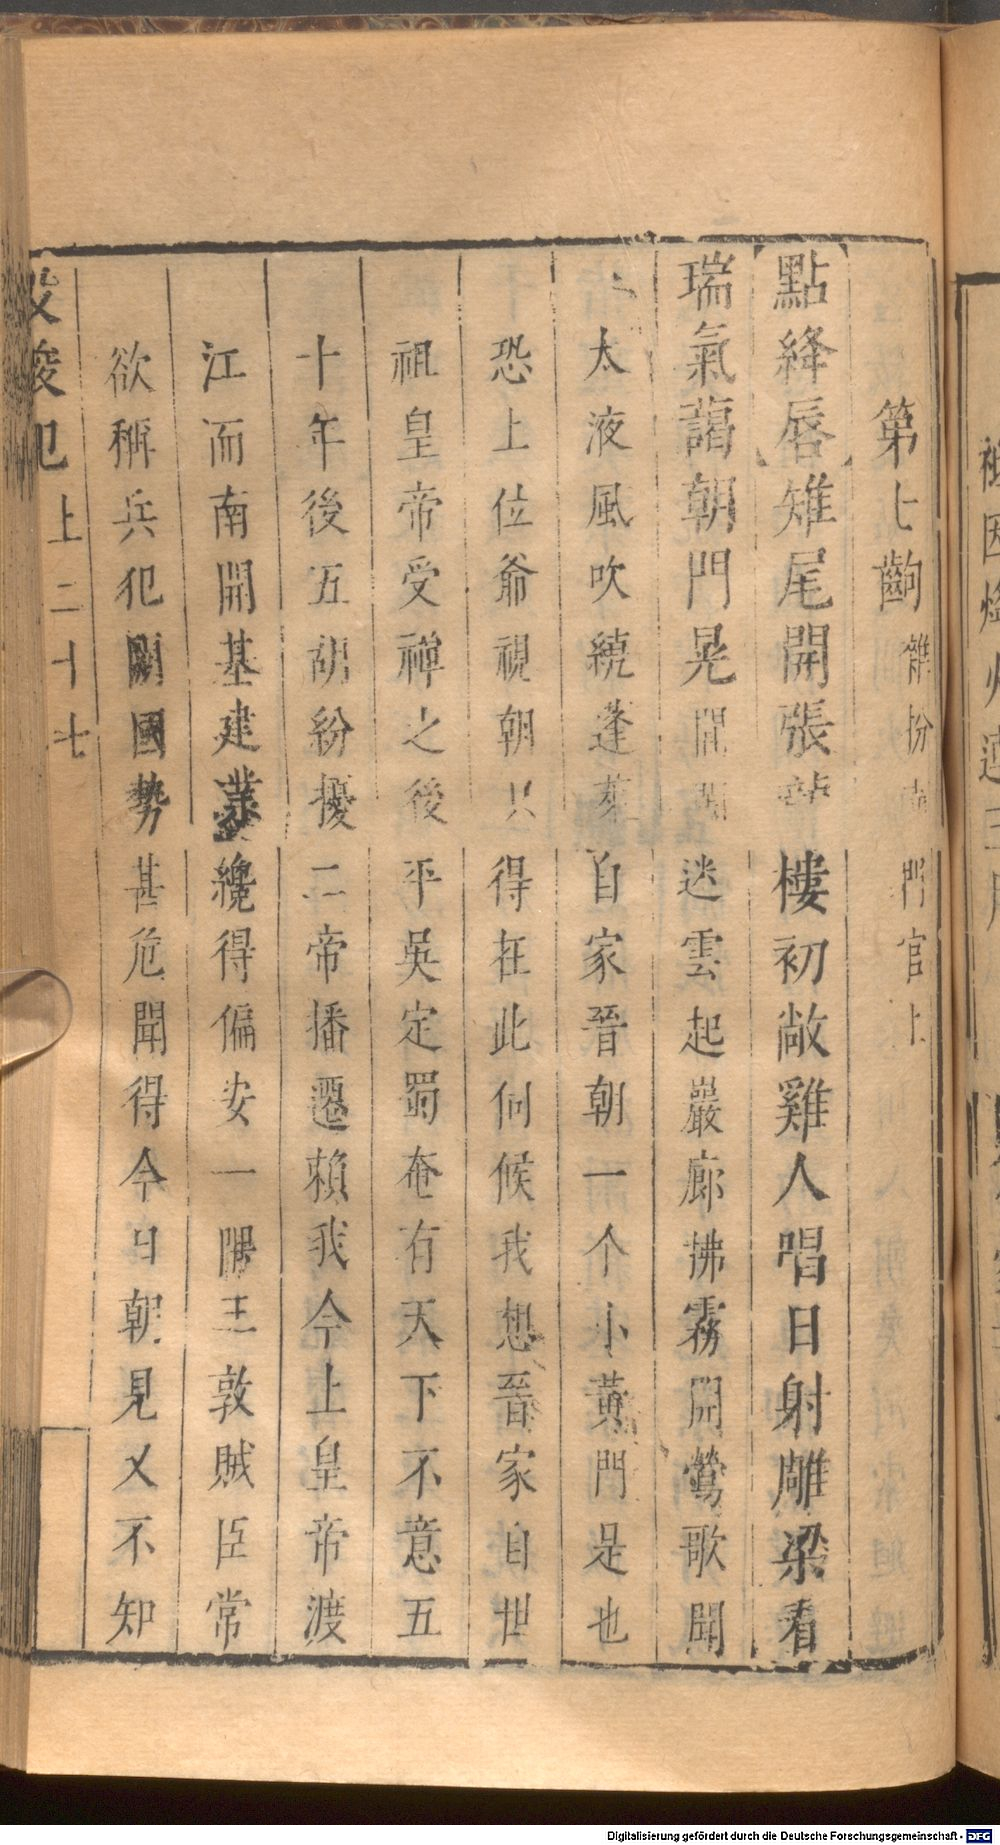 第七齣 雜扮 門官上
點絳唇 雉尾開張 樓初敞雞人唱日射雕梁看
瑞氣藹朝門晃 迷雲起巖廊拂霧開鶯歌聞
太液風吹繞蓬萊自家晉朝一个小黃門是也
恐上位爺視朝只得在此伺候我想晉家自世
祖皇帝受禪之後平吳定蜀奄有天下不意五
十年後五胡紛擾二帝播遷賴我今上皇帝渡
江而南開基建業纔得偏安一隅王敦賊臣常
欲稱兵犯闕國勢甚危聞得今日朝見又不知
犯上 二十七
Digitalisierung gefördert durch die Deutsche Forschungsgemeinschaft - DFG